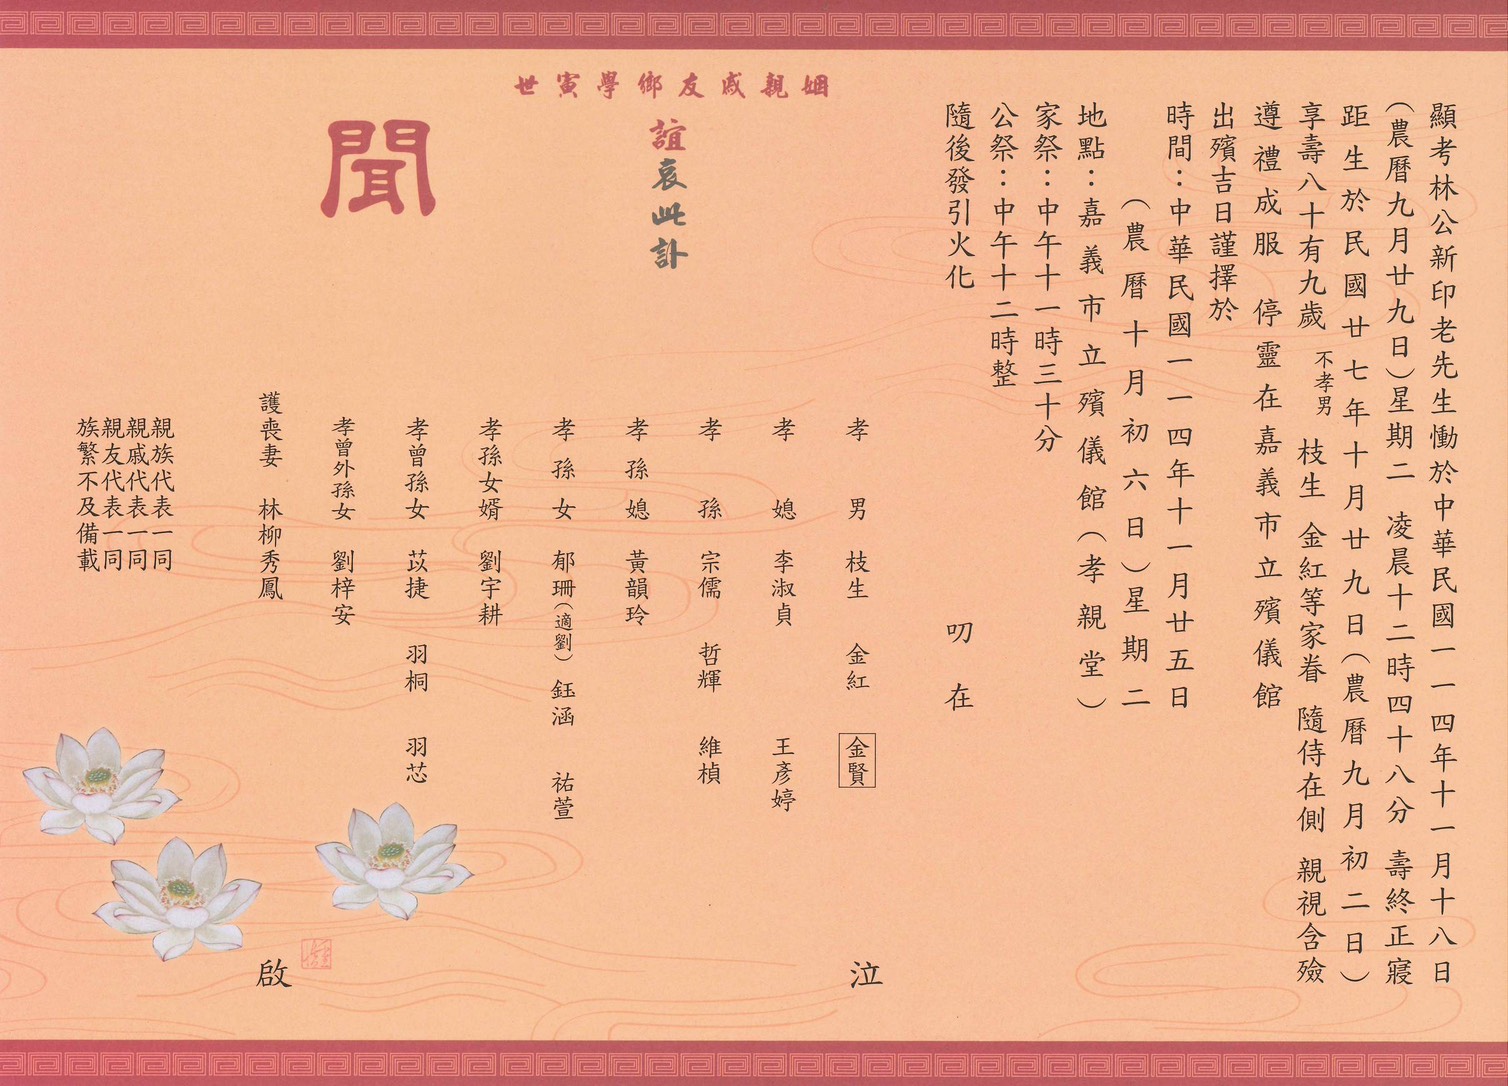 顯考林公新印老先生慟於中華民國一一四年十一月十八日
（農曆九月廿九日）星期二 凌晨十二時四十八分 壽終正寢
距生於民國廿七年十月廿九日（農曆九月初二日）
享壽八十有九歲 不孝男 枝生 金紅等家眷 隨侍在側 親視含殮
遵禮成服 停靈在嘉義市立殯儀館
出殯吉日謹擇於
時間：中華民國一一四年十一月廿五日
（農曆十月初六日）星期二
地點：嘉義市立殯儀館（孝親堂）
家祭：中午十一時三十分
公祭：中午十二時整
隨後發引火化
叨在
姻親戚友鄉學寅世
誼哀此訃
聞
孝男 枝生 金紅 金賢
孝媳 李淑貞 王彥婷
孝孫 宗儒 哲輝 維楨
孝孫媳 黃韻玲
孝孫女 郁珊（適劉） 鈺涵 祐萱
孝孫女婿 劉宇耕
孝曾孫女 苡捷 羽桐 羽芯
孝曾外孫女 劉梓安
護喪妻 林柳秀鳳
泣
啟
親族代表一同
親戚代表一同
親友代表一同
族繁不及備載